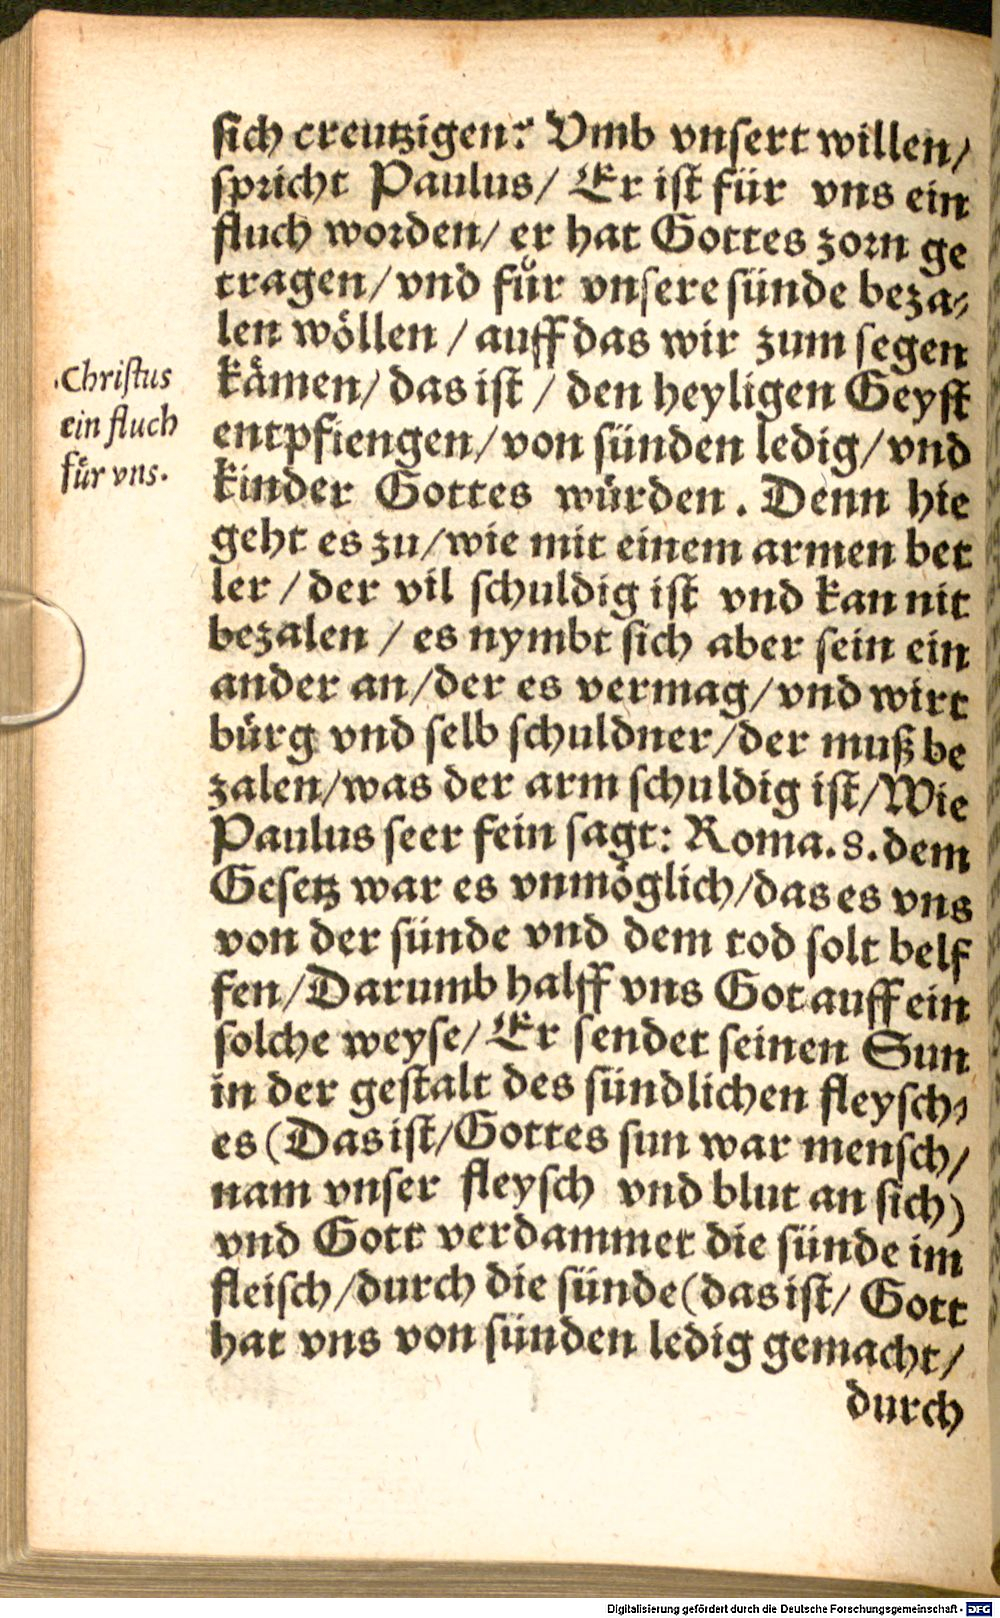 sich creutzigen? Vmb vnsert willen/
spricht Paulus/ Er ist für vns ein
fluch worden/ er hat Gottes zorn ge
tragen/vnd fuͤr vnsere sünde beza⸗
len wöllen / auff das wir zum segen
kämen/ das ist / den heyligen Geyst
entpfiengen/von sünden ledig/vnd
kinder Gottes würden. Denn hie
geht es zu/wie mit einem armen bet
ler / der vil schuldig ist vnd kan nit
bezalen / es nymbt sich aber sein ein
ander an/der es vermag/vnd wirt
bürg vnd selb schuldner/der muß be
zalen/was der arm schuldig ist/Wie
Paulus seer fein sagt: Roma.8.dem
Gesetz war es vnmöglich/das es vns
von der sünde vnd dem tod solt helf
fen/Darumb halff vns Got auff ein
solche weyse/ Er sendet seinen Sun
in der gestalt des sündlichen fleysch⸗
es (Das ist/Gottes sun war mensch/
nam vnser fleysch vnd blut an sich)
vnd Gott verdammet die sünde im
fleisch/durch die sünde (das ist/ Gott
hat vns von sünden ledig gemacht/
durch
Christus
ein fluch
fuͤr vns.
Digitalisierung gefördert durch die Deutsche Forschungsgemeinschaft - DFG